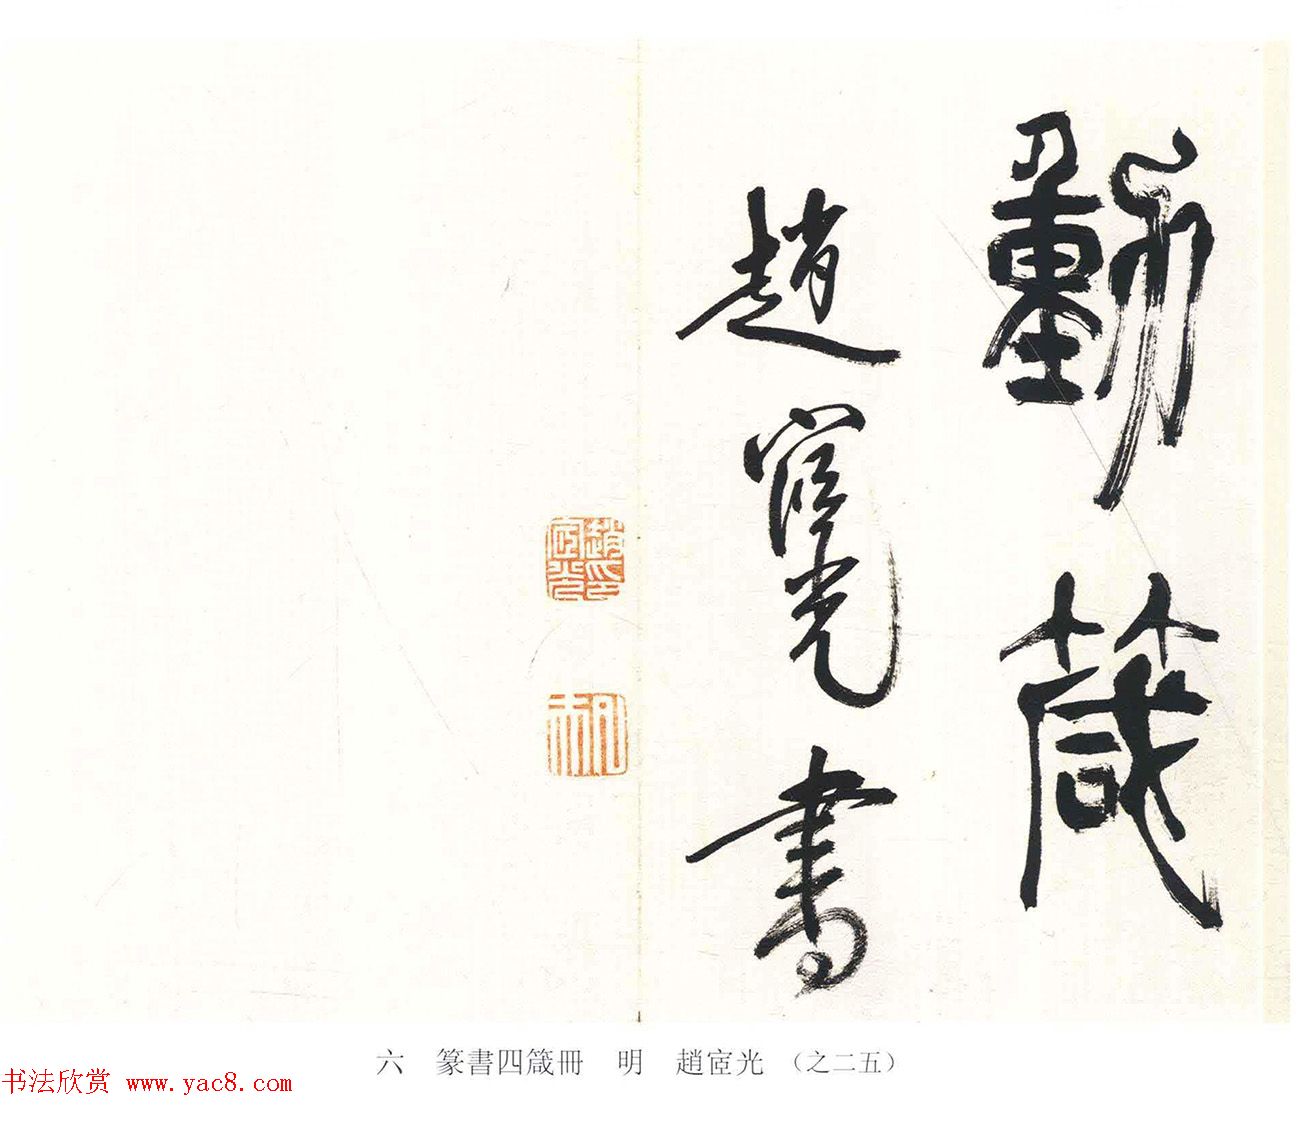 動箴
趙宧光書
趙宧光印
六　篆書四箴冊　明　趙宧光（之二五）
书法欣赏 www.yac8.com